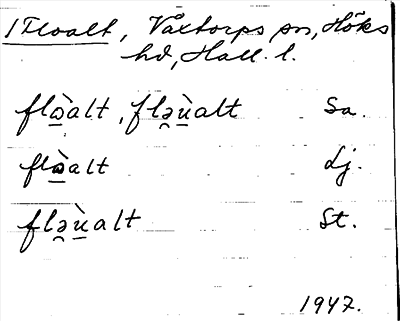 1 Floalt, Våxtorps sn, Höks
hd, Hall. l.
flə̀alt, flə̯ùalt Sa.
flə̀alt Lj.
flə̯ùalt St.
1947.